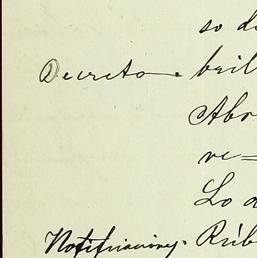 so d
Decreto. bril
Abo
ve=
Lo a
Notificaciones. Rúb